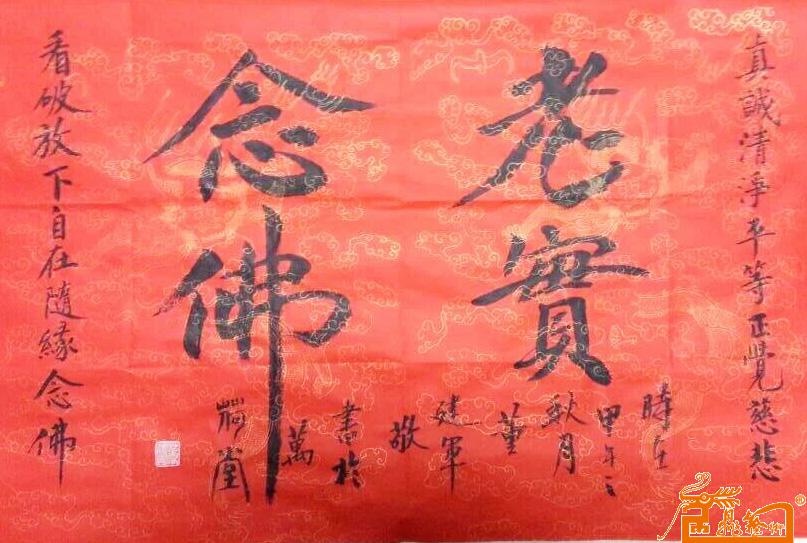 真誠清淨平等正覺慈悲
老實
念佛
看破放下自在隨緣念佛
時在
甲午年
秋月
董
建軍
敬
書於
萬
堂